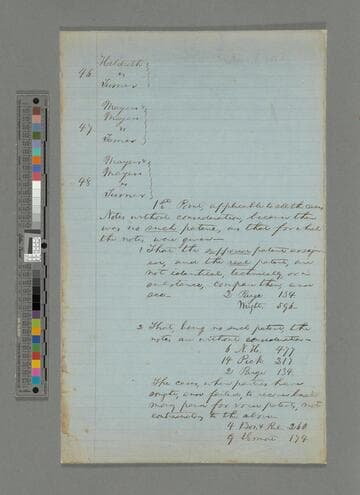 46. Hildreth
vs
Turner
47. Mayers &
Mayers
vs
Turner
48 Mayers &
Mayers
vs
Turner
1st Point, applicable to all the cases
Notes without consideration, because there
was no such patent, as that for which
the notes were given—
1. That the supposed patent assign-
ed, and the real patent, are
not identical, technically or in
substance, compare them and
see. 2 Page 134
596
2. That, being no such patent, the
notes are without consideration—
6 N. H. 477
14 Pick 217
2 Page 134.
The cases, where parties have
sought, and failed, to recover back
money paid for void patents, not
contradictory to the above
4 Bos. & Pul 260
9 174